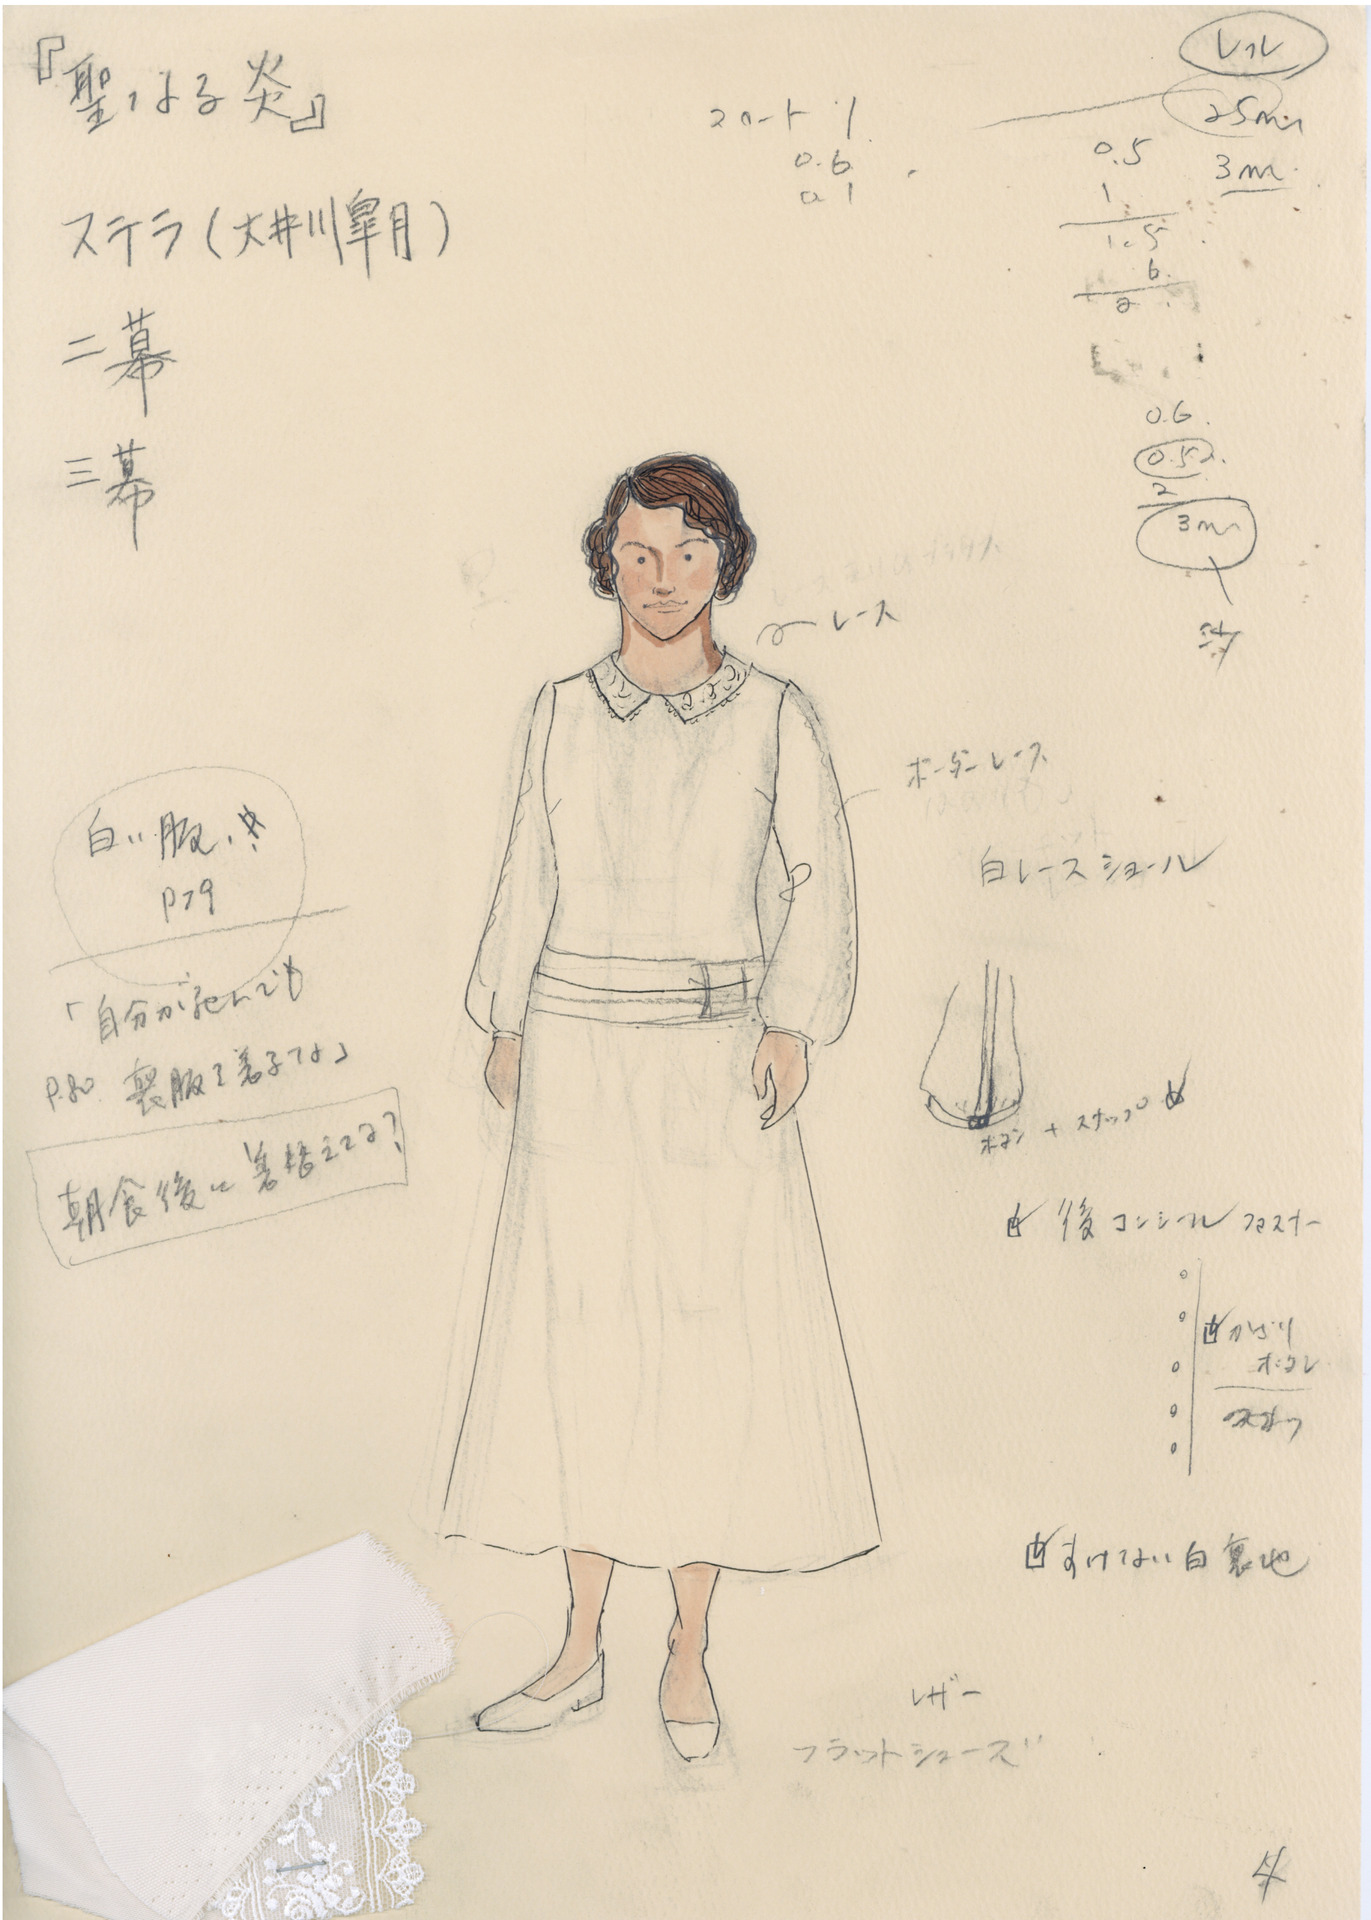 『聖なる炎』
ステラ(大井川皐月)
二幕
三幕
スカート 1
0.6
0.1
25m
3m
0.5
1
1.5
6
2
0.6
0.5
2
3m
レース
ボーダーレース
白レースショール
白い服
P79
「自分が死んでも
P.80. 喪服を着るな」
朝食後に着替えてる?
ボタン + スナップ
後コンシールファスナー
かざり
ボタン
すけない白裏地
レザー
フラットシューズ
4